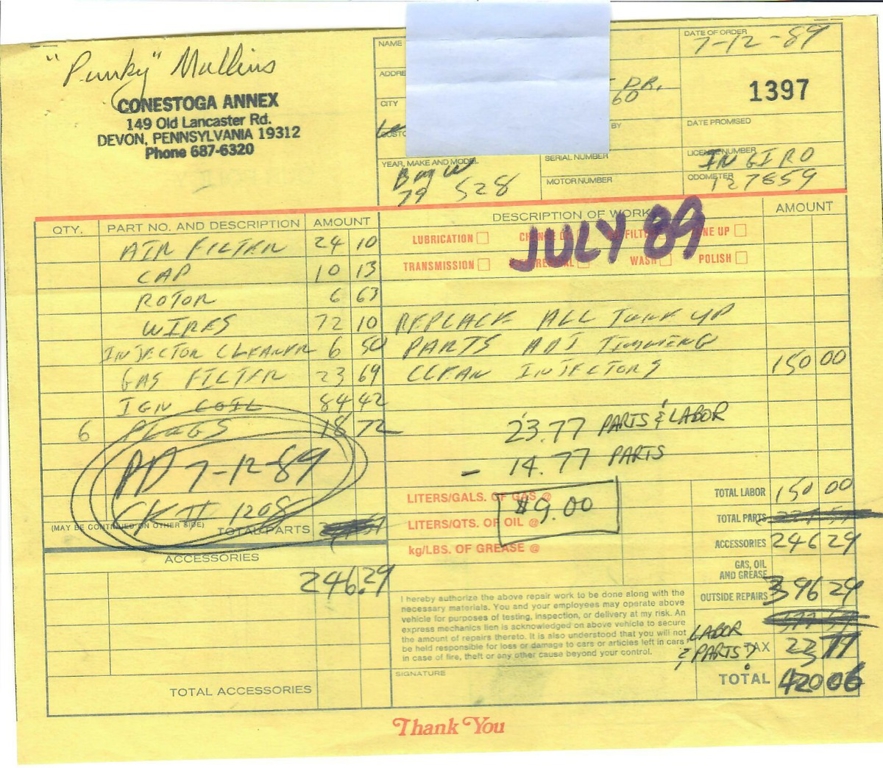 "Punky" Mullins
CONESTOGA ANNEX
149 Old Lancaster Rd.
DEVON, PENNSYLVANIA 19312
Phone 687-6320
NAME
ADDRE
DR.
CITY
60
BY
DATE OF ORDER
7-12-89
1397
DATE PROMISED
YEAR, MAKE AND MODEL
79 528
SERIAL NUMBER
MOTOR NUMBER
LICENSE NUMBER
IN GIRO
ODOMETER
127859
QTY. PART NO. AND DESCRIPTION AMOUNT DESCRIPTION OF WORK AMOUNT
JULY 89
LUBRICATION
TRANSMISSION WASH POLISH
AIR FILTER 24 10
CAP 10 13
ROTOR 6 63
WIRES 72 10 REPLACE ALL TUNE UP
INJECTOR CLEANER 6 50 PARTS ADJ TIMMING
GAS FILTER 23 69 CLEAN INJECTORS 150 00
IGN COIL 84 42
6 PLUGS 18 72
23.77 PARTS & LABOR
PD 7-12-89
- 14.77 PARTS
CK# 1208
$9.00
LITERS/GALS. OF GAS @
LITERS/QTS. OF OIL @
kg/LBS. OF GREASE @
TOTAL LABOR 150 00
(MAY BE CONTINUED ON OTHER SIDE) TOTAL PARTS
TOTAL PARTS
ACCESSORIES 246 29
ACCESSORIES
246.29
GAS, OIL AND GREASE
OUTSIDE REPAIRS 396 29
I hereby authorize the above repair work to be done along with the
necessary materials. You and your employees may operate above
vehicle for purposes of testing, inspection, or delivery at my risk. An
express mechanics lien is acknowledged on above vehicle to secure
the amount of repairs thereto. It is also understood that you will not
be held responsible for loss or damage to cars or articles left in cars
in case of fire, theft or any other cause beyond your control.
LABOR
& PARTS? TAX 23 77
SIGNATURE
TOTAL 420 06
TOTAL ACCESSORIES
Thank You